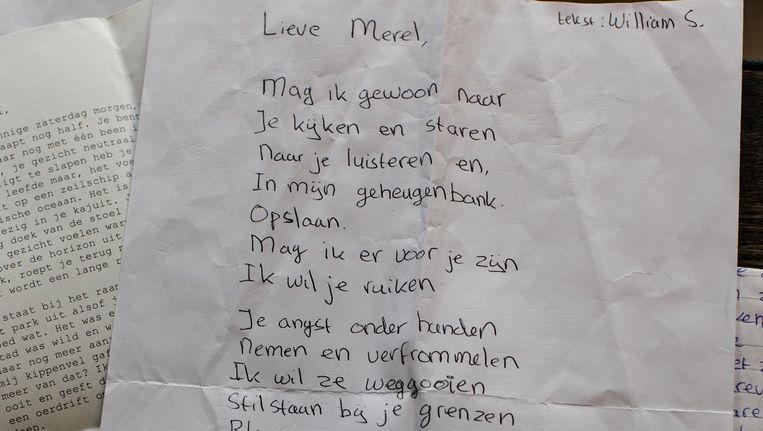 Lieve Merel,
tekst: William S.
Mag ik gewoon naar
Je kijken en staren
Naar je luisteren en,
In mijn geheugenbank.
Opslaan.
Mag ik er voor je zijn
Ik wil je ruiken
Je angst onder handen
Nemen en verfrommelen
Ik wil ze weggooien
Stilstaan bij je grenzen
nige zaterdag morgen,
aapt nog half. Je ben
ar nog met één been i
, je gezicht neutraal
ligt te slapen heb je
leefde maar, het voe
t op een zeilschip a
ische oceaan. Het is
ezig in je kajuit.
g doek van de stoel
gezicht voelen war
over de horizon uit
k, roept je terug n
t wordt een lange r
staat bij het raar
t park uit alsof j
oed wat. Het was e
tad was wild en w
aar nog meer aan
mij kippenvel gaf
meer van dat? Ik
ooit en geeft d
een oerdrift o